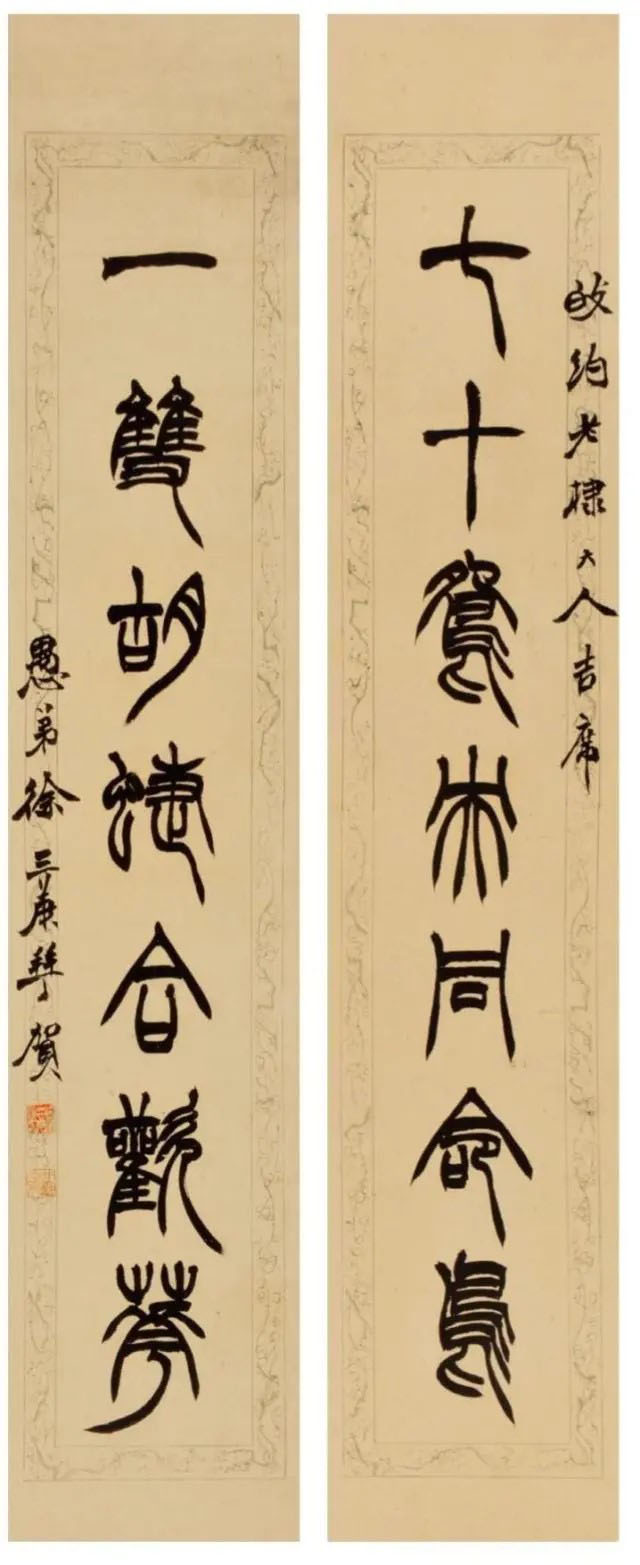 約老棣大人吉席
七十鴛央同命鳥
一雙胡蜨合歡華
愚弟徐三庚拜賀